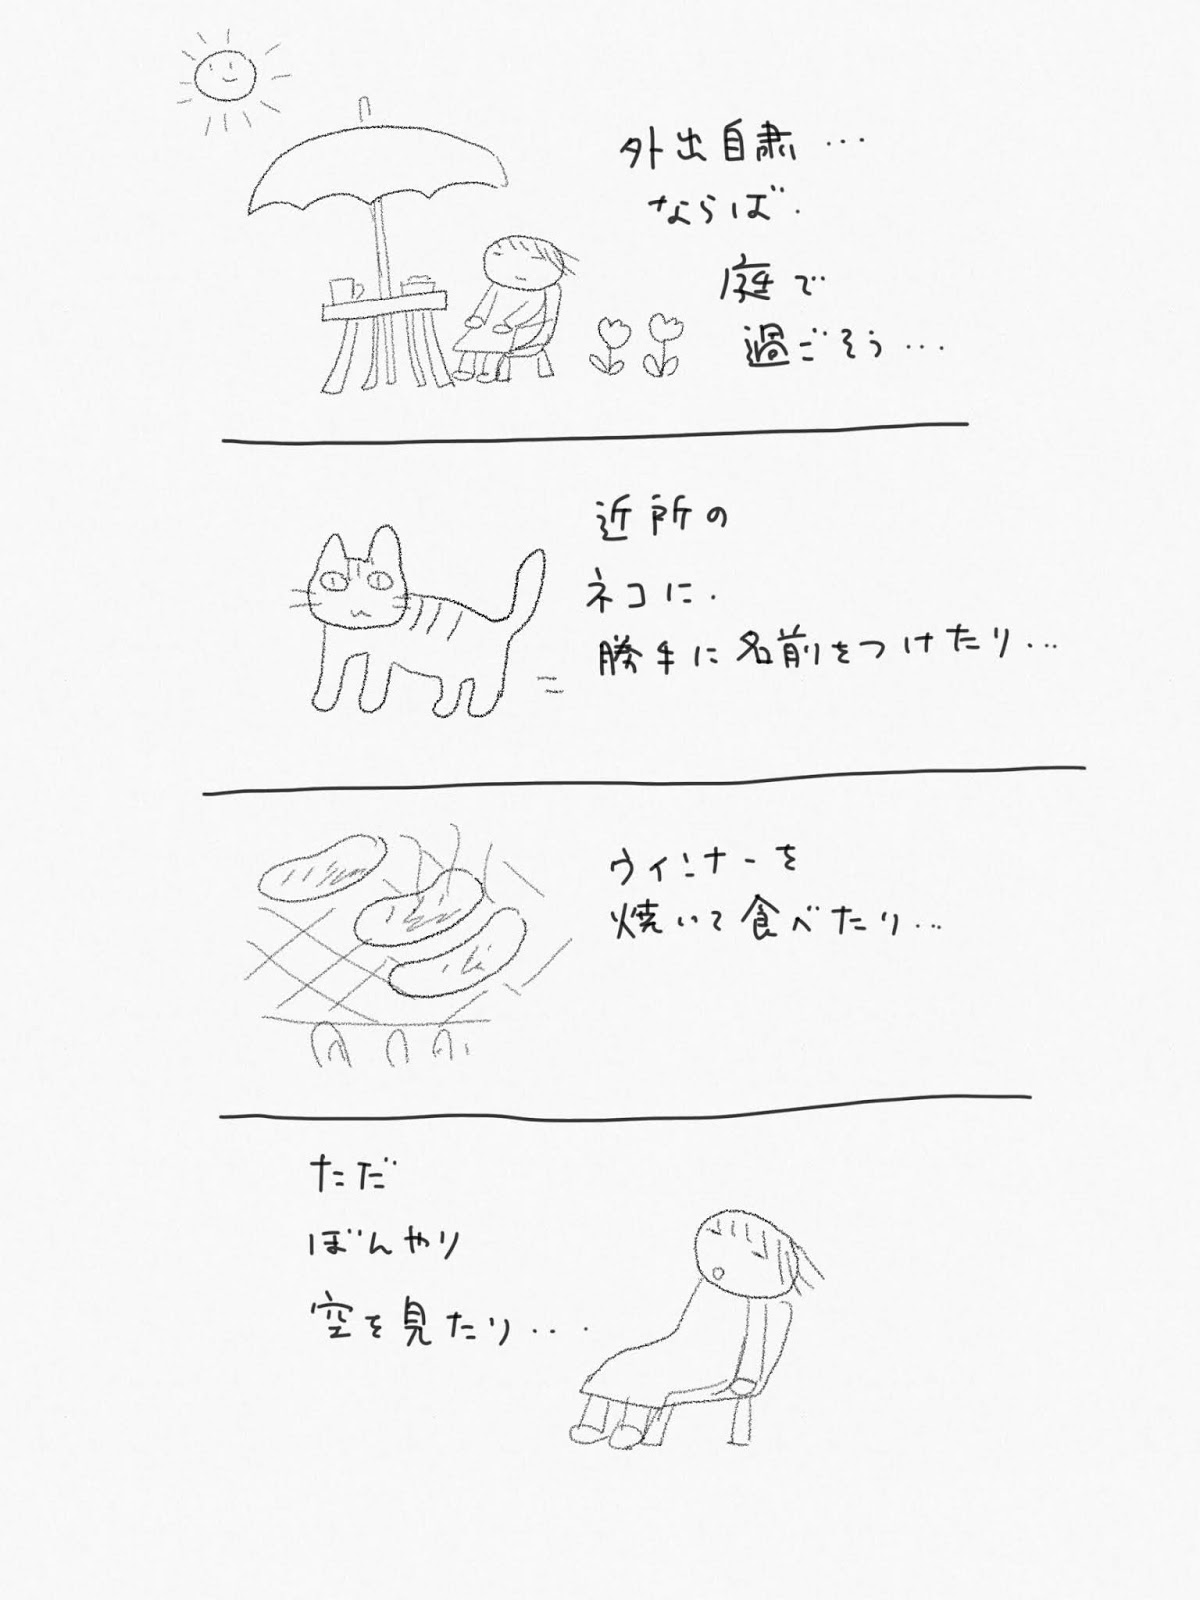 外出自粛...
ならば.
庭で
過ごそう...
近所の
ネコに.
勝手に名前をつけたり...
ウィンナーを
焼いて食べたり...
ただ
ぼんやり
空を見たり...